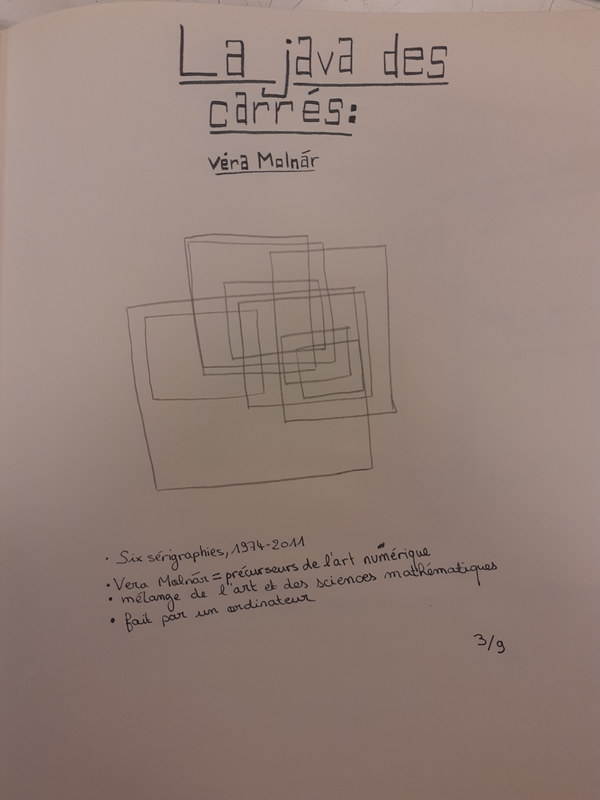 La java des
carrés:
Véra Molnár
• Six sérigraphies, 1974-2011
• Vera Molnár = précurseurs de l'art numérique
• mélange de l'art et des sciences mathématiques
• fait par un ordinateur
3/9